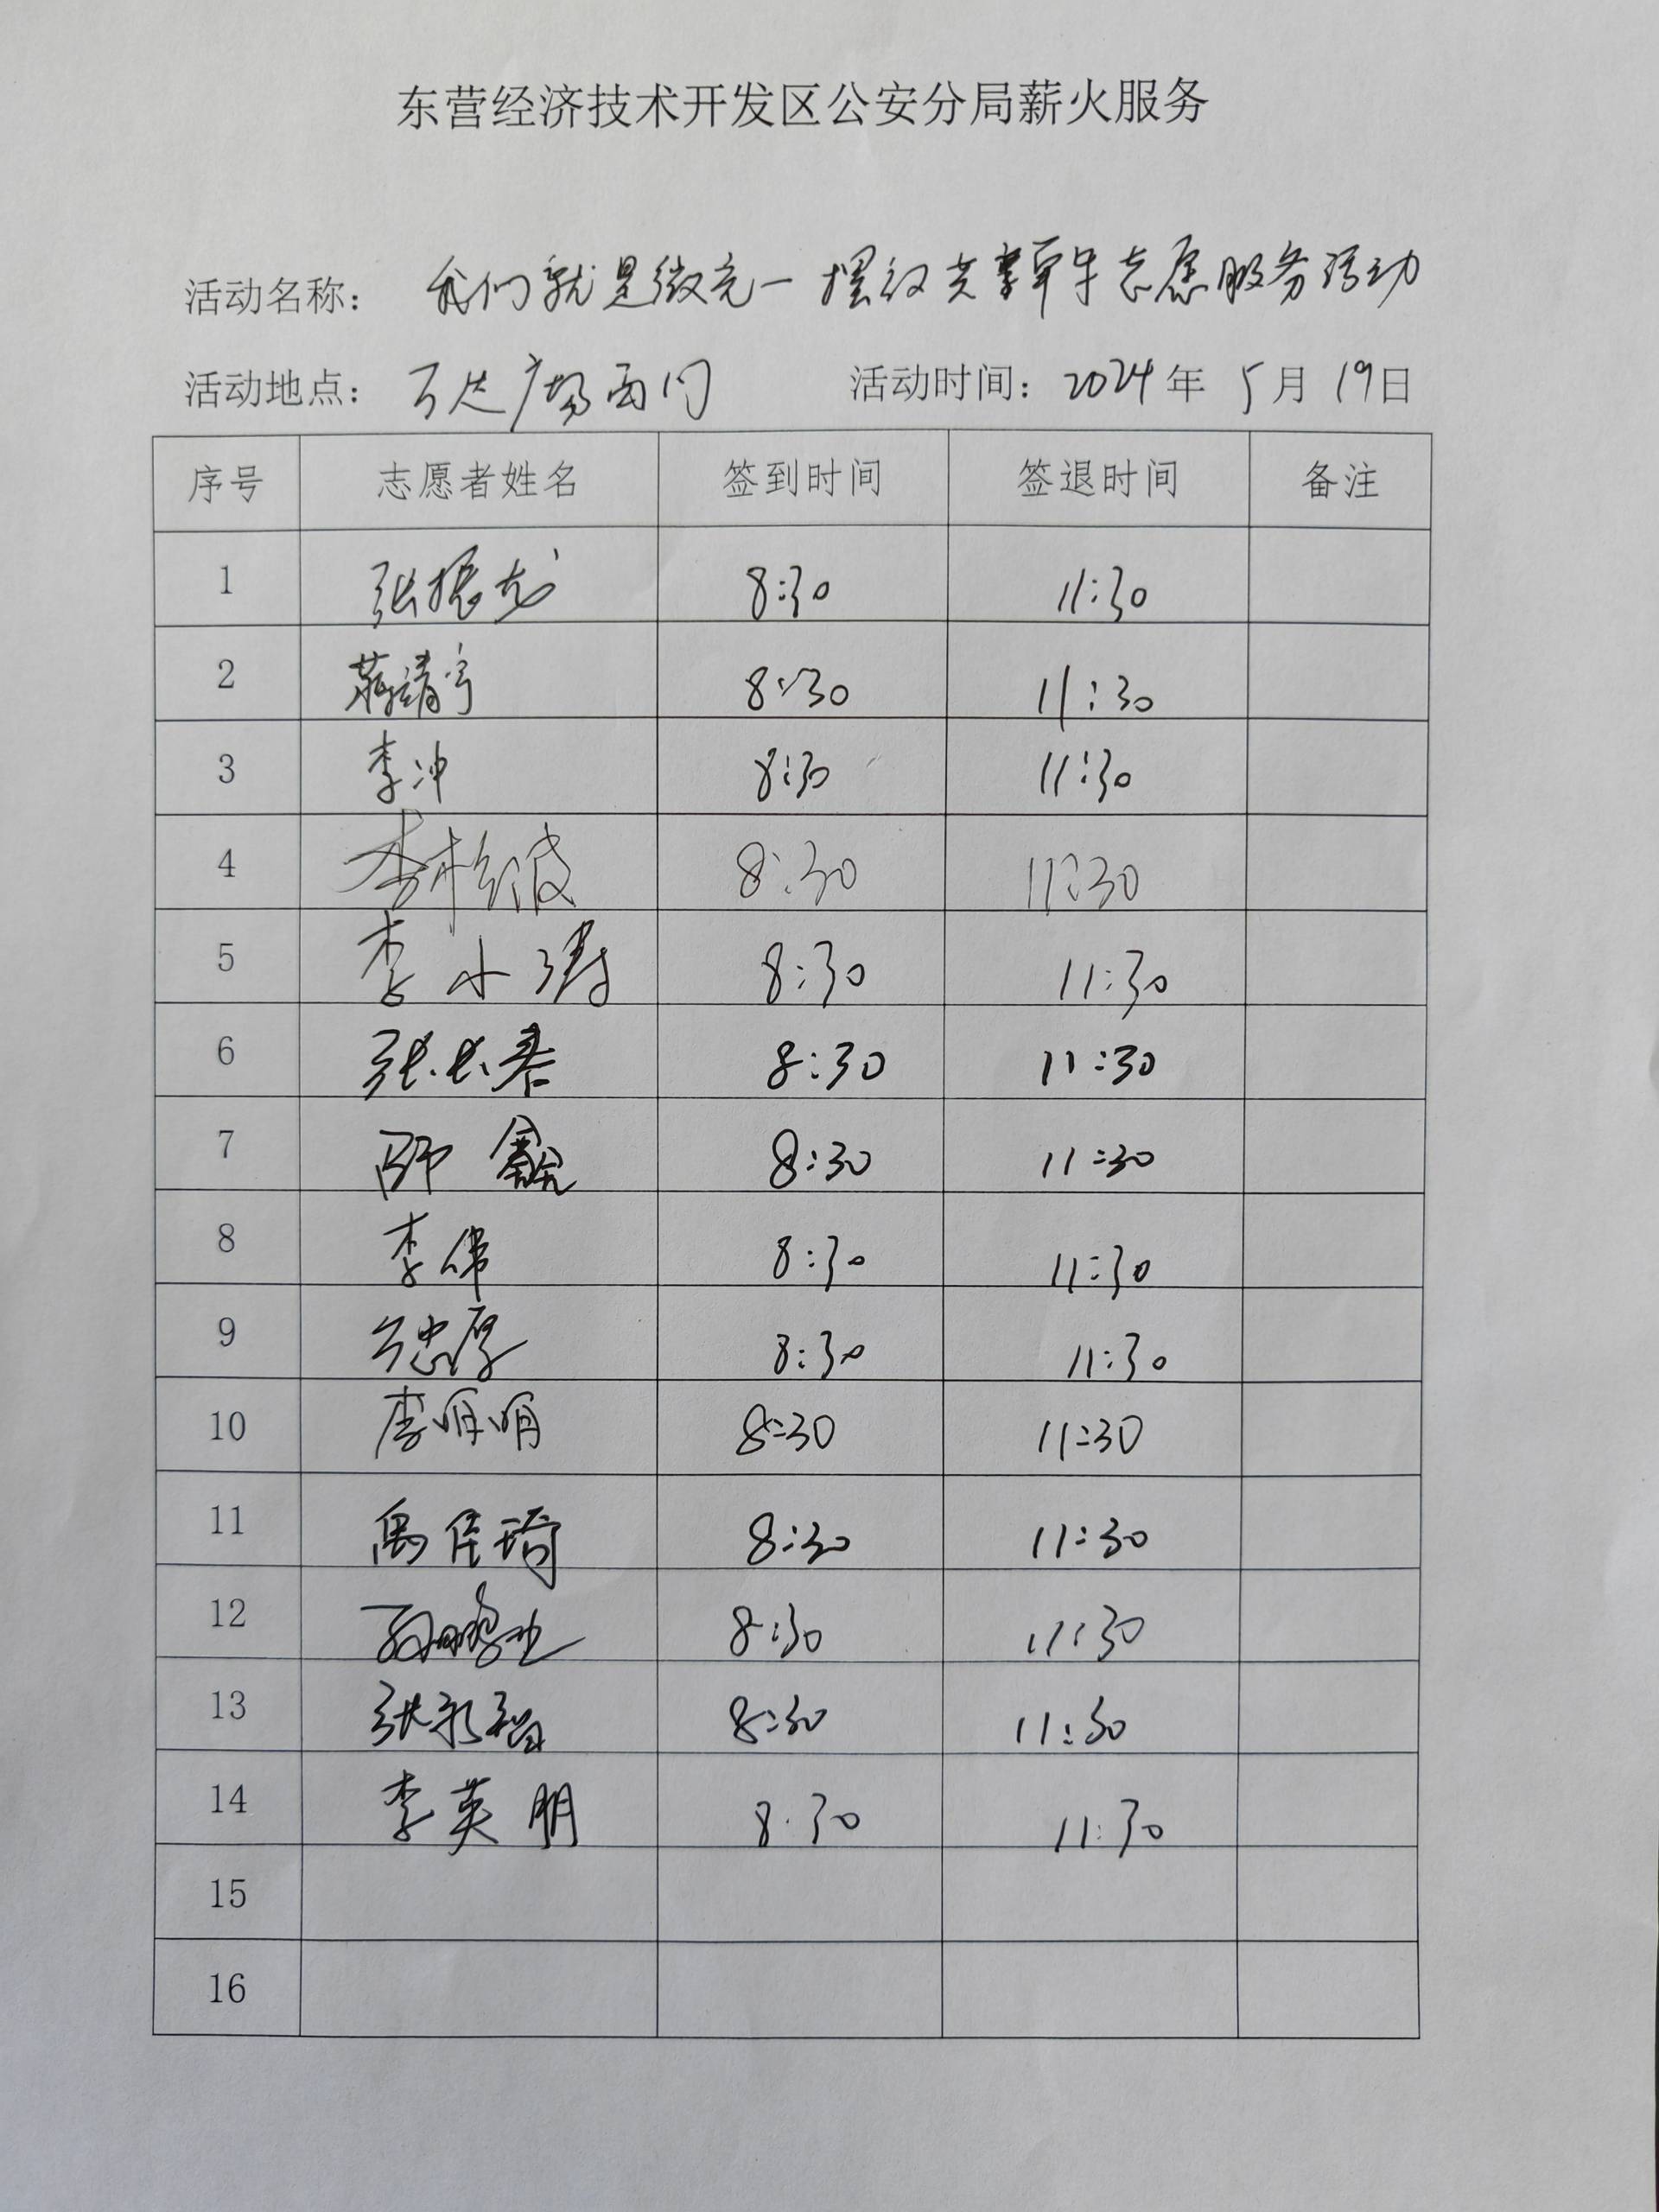 东营经济技术开发区公安分局薪火服务
活动名称： 我们就是微光一摆放共享单车志愿服务活动
活动地点： 万达广场西门 活动时间：2024年 5月 19日
序号 志愿者姓名 签到时间 签退时间 备注
1 张振龙 8:30 11:30
2 蒋靖宇 8:30 11:30
3 李冲 8:30 11:30
4 李松波 8:30 11:30
5 李小涛 8:30 11:30
6 张长春 8:30 11:30
7 邵鑫 8:30 11:30
8 李伟 8:30 11:30
9 忠厚 8:30 11:30
10 李明明 8:30 11:30
11 禹佳琦 8:30 11:30
12 8:30 11:30
13 张 8:30 11:30
14 李英朋 8:30 11:30
15
16